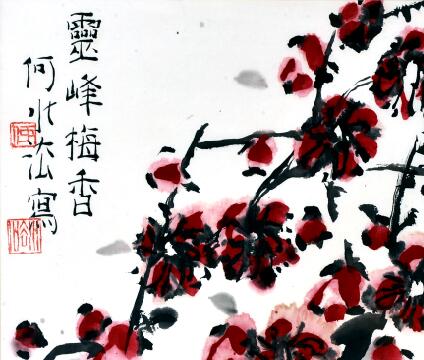 靈峰梅香
何水法寫